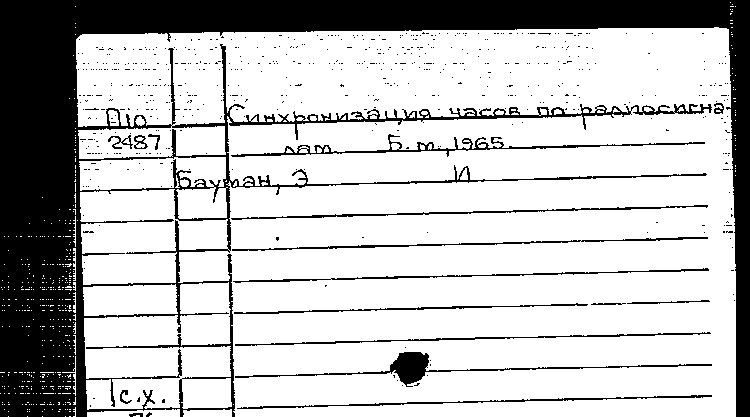 П10 Синхронизация часов по радиосигна-
2487 лам Б.м., 1965.
Бауман, Э И
1с.х.